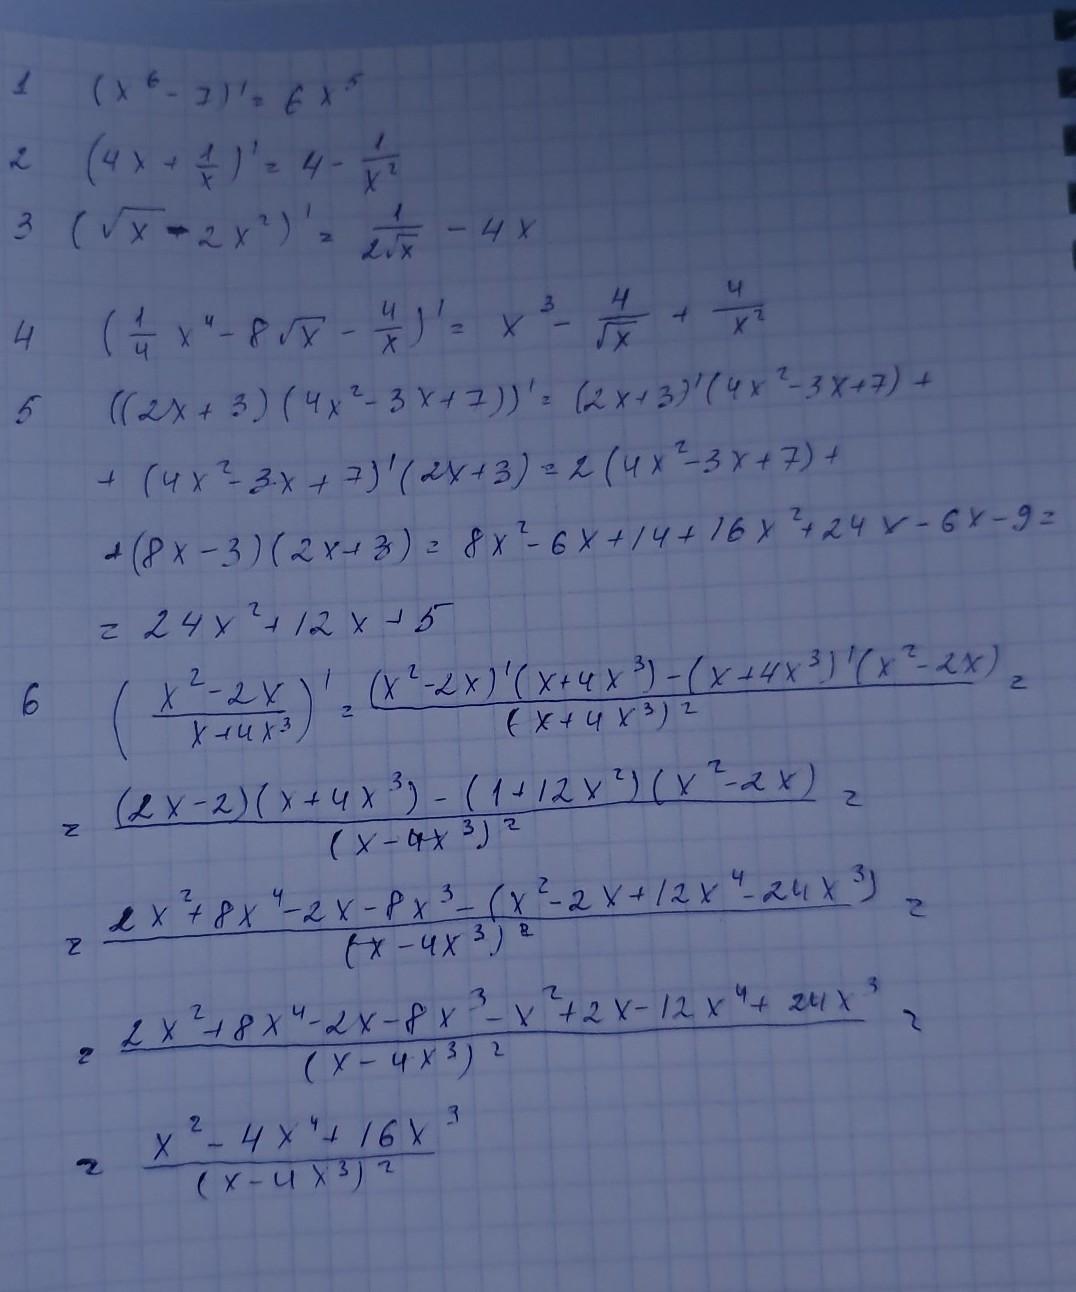 1 (x⁶ - 7)' = 6x⁵
2 (4x + 1/x)' = 4 - 1/x²
3 (√x - 2x²)' = 1/(2√x) - 4x
4 (1/4 x⁴ - 8√x - 4/x)' = x³ - 4/√x + 4/x²
5 ((2x + 3)(4x² - 3x + 7))' = (2x + 3)'(4x² - 3x + 7) +
+ (4x² - 3x + 7)'(2x + 3) = 2(4x² - 3x + 7) +
+ (8x - 3)(2x + 3) = 8x² - 6x + 14 + 16x² + 24x - 6x - 9 =
= 24x² + 12x + 5
6 ((x² - 2x)/(x + 4x³))' = ((x² - 2x)'(x + 4x³) - (x + 4x³)'(x² - 2x))/(x + 4x³)² =
= ((2x - 2)(x + 4x³) - (1 + 12x²)(x² - 2x))/(x - 4x³)² =
= (2x² + 8x⁴ - 2x - 8x³ - (x² - 2x + 12x⁴ - 24x³))/(x - 4x³)² =
= (2x² + 8x⁴ - 2x - 8x³ - x² + 2x - 12x⁴ + 24x³)/(x - 4x³)² =
= (x² - 4x⁴ + 16x³)/(x - 4x³)²